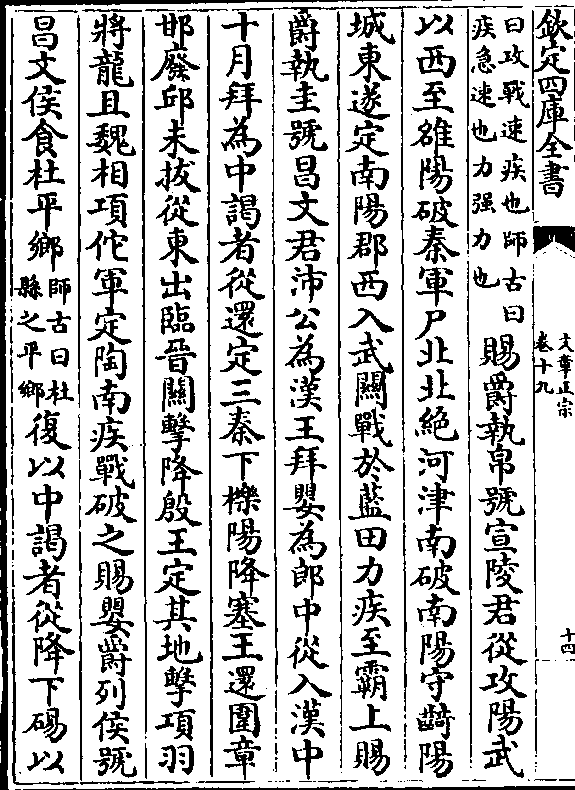 欽定四庫全書
文章正宗
卷十九
十四
曰攻戰速疾也師古曰
疾急速也力强力也
賜爵執帛號宣陵君從攻陽武
以西至雒陽破秦軍尸北北絶河津南破南陽守齮陽
城東遂定南陽郡西入武關戰於藍田力疾至霸上賜
爵執圭號昌文君沛公為漢王拜嬰為郎中從入漢中
十月拜為中謁者從還定三秦下櫟陽降塞王還圍章
邯廢邱未拔從東出臨晉關擊降殷王定其地擊項羽
將龍且魏相項佗軍定陶南疾戰破之賜嬰爵列侯號
昌文侯食杜平鄉
師古曰杜
縣之平鄉
復以中謁者從降下碭以